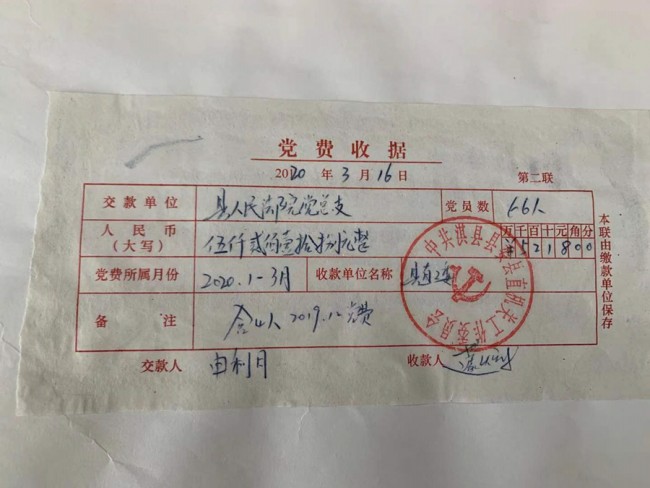 党费收据
2020 年 3 月 16 日 第二联
交款单位 县人民法院党总支 党员数 66人
人民币(大写) 伍仟贰佰壹拾捌元整 万千百十元角分 ¥521800
党费所属月份 2020.1-3月 收款单位名称 县直
备注 含4人 2019.12党费
交款人 收款人
本联由缴款单位保存
中共淇县县委县直机关工作委员会